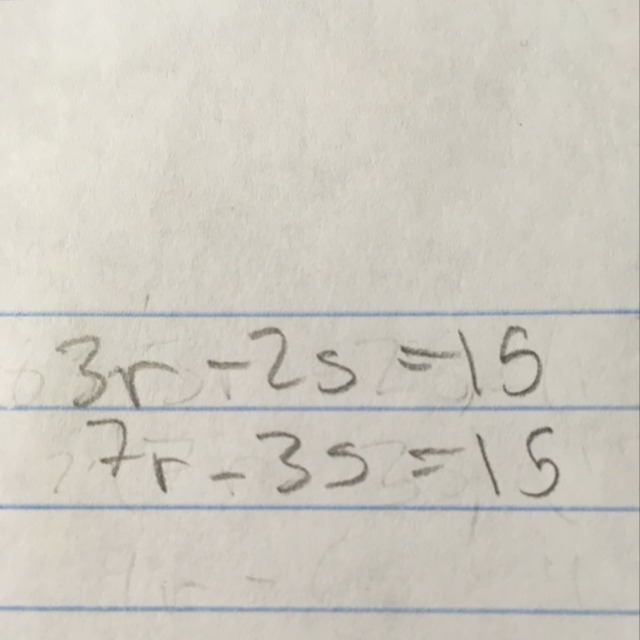 3r - 2s = 15
7r - 3s = 15